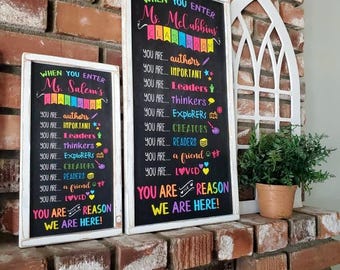 WHEN YOU ENTER
Ms. Salem's
CLASSROOM
YOU ARE... authors
YOU ARE... IMPORTANT
YOU ARE... Leaders
YOU ARE... THINKERS
YOU ARE... EXPLORERS
YOU ARE... CREATORS
YOU ARE... READERS
YOU ARE... a friend
YOU ARE... LOVED
YOU ARE THE REASON
WE ARE HERE!
WHEN YOU ENTER
Ms. McCubbins'
CLASSROOM
YOU ARE... authors
YOU ARE... IMPORTANT
YOU ARE... Leaders
YOU ARE... THINKERS
YOU ARE... EXPLORERS
YOU ARE... CREATORS
YOU ARE... READERS
YOU ARE... a friend
YOU ARE... LOVED
YOU ARE THE REASON
WE ARE HERE!